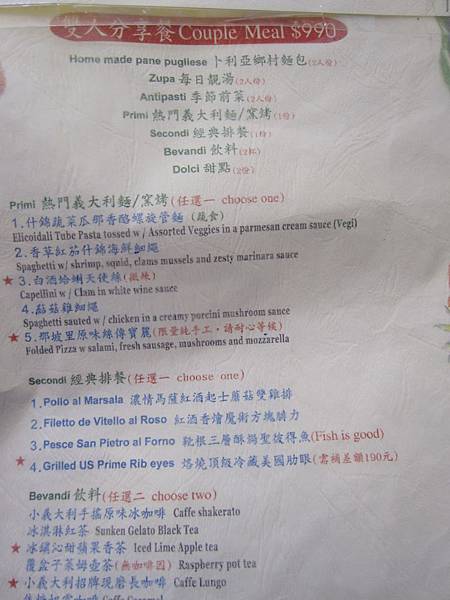 雙人分享餐 Couple Meal $990
Home made pane pugliese 卜利亞鄉村麵包(2人份)
Zupa 每日靚湯(2人份)
Antipasti 季節前菜(2人份)
Primi 熱門義大利麵/窯烤(1份)
Secondi 經典排餐(1份)
Bevandi 飲料(2杯)
Dolci 甜點(2份)
Primi 熱門義大利麵/窯烤(任選一 choose one)
1.什錦蔬菜瓜那香酪螺旋管麵 (蔬食)
Elicoidali Tube Pasta tossed w / Assorted Veggies in a parmesan cream sauce (Vegi)
2.香草紅茄什錦海鮮細繩
Spaghetti w/ shrimp, squid, clams mussels and zesty marinara sauce
★ 3.白酒蛤蜊天使絲(微辣)
Capellini w / Clam in white wine sauce
4.菇菇雞細繩
Spaghetti sauted w / chicken in a creamy porcini mushroom sauce
★ 5.那坡里原味絲傳寶麗(限量純手工，請耐心等候)
Folded Pizza w salami, fresh sausage, mushrooms and mozzarella
Secondi 經典排餐(任選一 choose one)
1.Pollo al Marsala 濃情馬薩紅酒起士蘑菇雙雞排
2.Filetto de Vitello al Roso 紅酒香燴魔術方塊腱力
3.Pesce San Pietro al Forno 靴根三層酥鍋聖彼得魚(Fish is good)
★ 4.Grilled US Prime Rib eyes 烙燒頂級冷藏美國肋眼(需補差額190元)
Bevandi 飲料(任選二 choose two)
小義大利手搖原味冰咖啡 Caffe shakerato
冰淇淋紅茶 Sunken Gelato Black Tea
★ 冰鎮沁甜蘋果香茶 Iced Lime Apple tea
覆盆子萊姆壺茶(無咖啡因) Raspberry pot tea
★ 小義大利招牌現磨長咖啡 Caffe Lungo